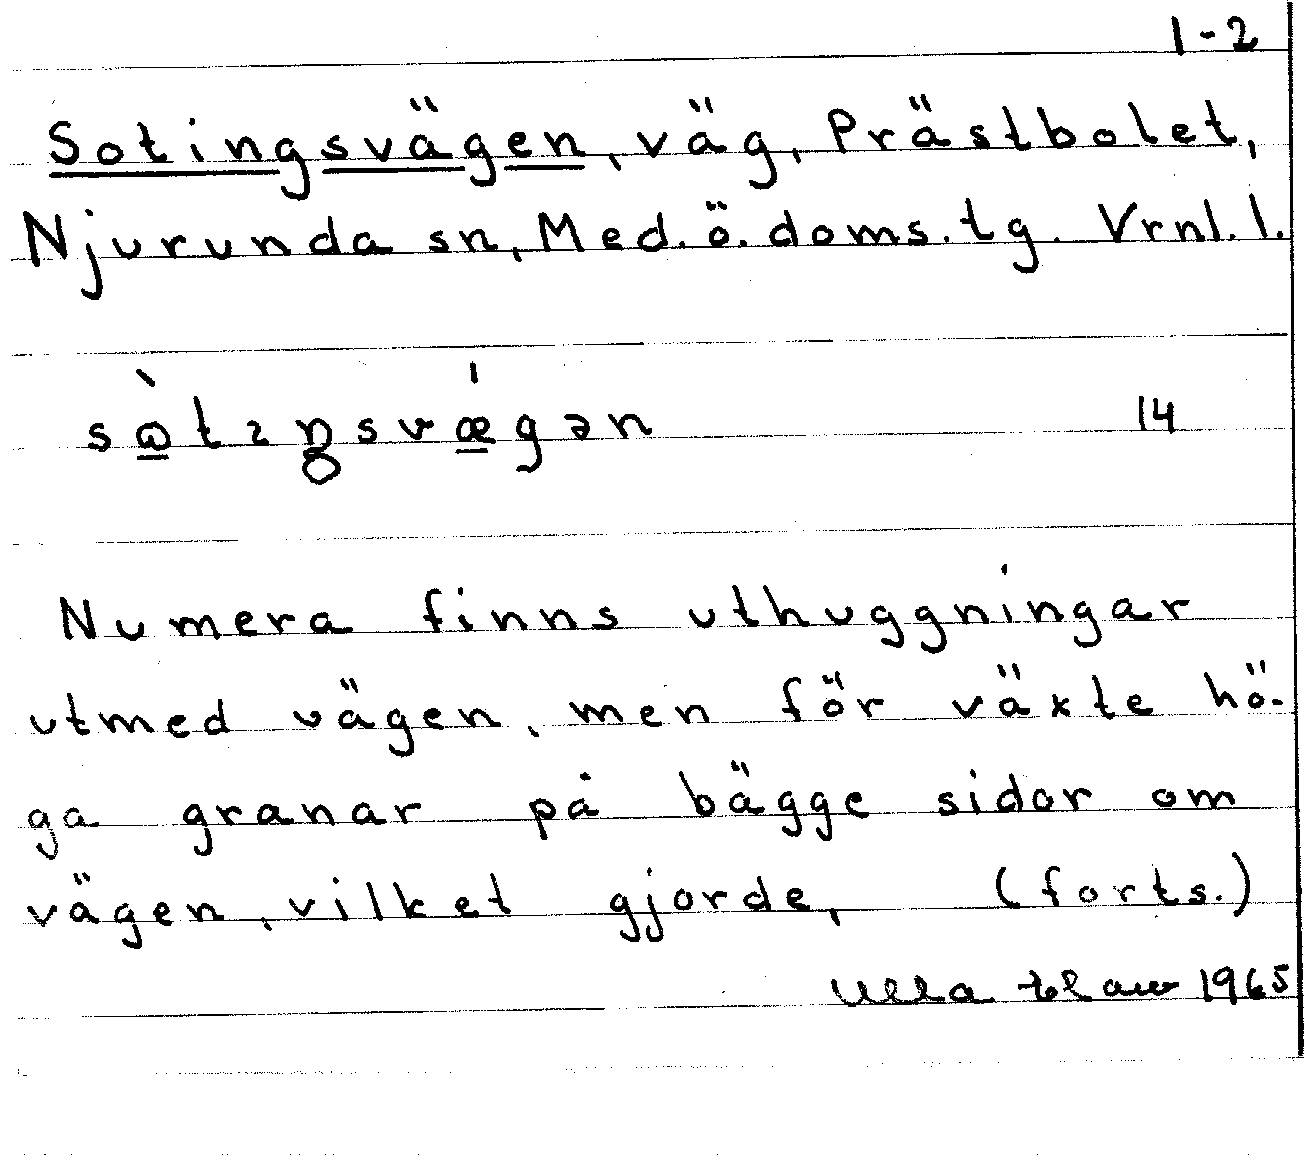 1-2
Sotingsvägen, väg, Prästbolet,
Njurunda sn, Med. ö. doms. tg. Vrnl. l.
sὼtıŋsvǽgən 14
Numera finns uthuggningar
utmed vägen, men för växte hö-
ga granar på bägge sidor om
vägen, vilket gjorde, (forts.)
Ulla 1965